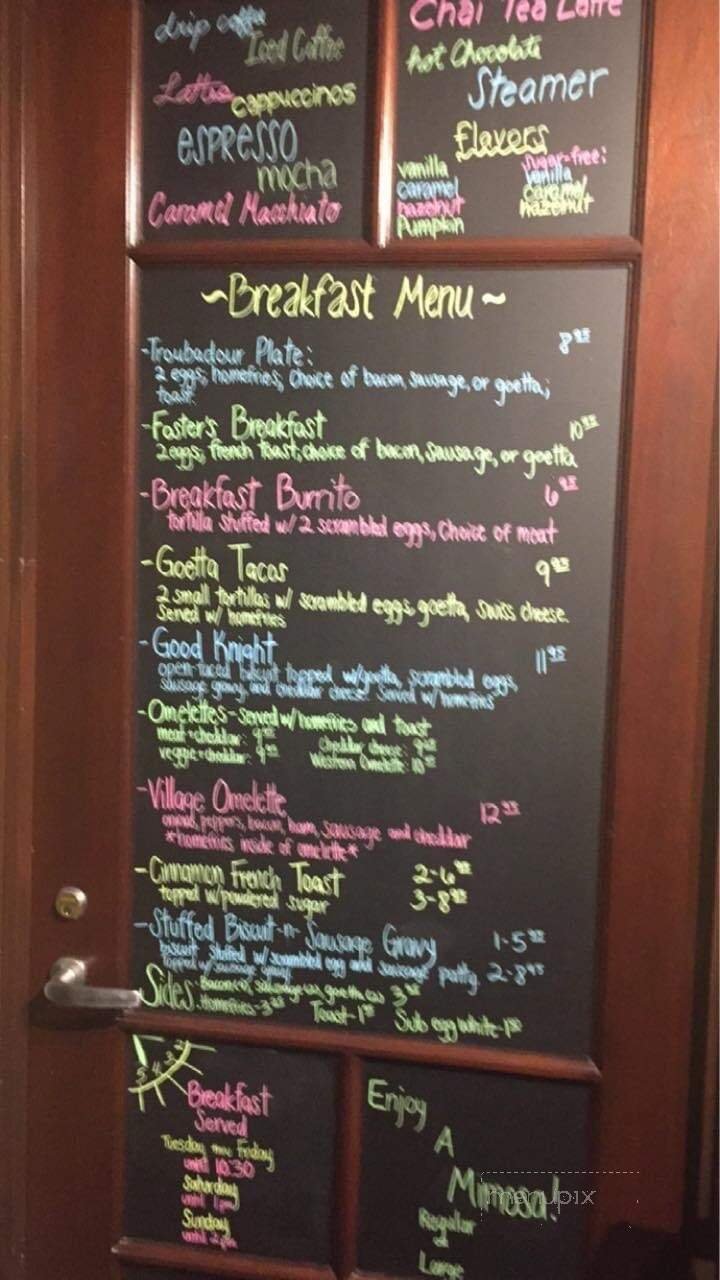 drip coffee
Iced Coffee
Lattes
cappuccinos
espresso
mocha
Caramel Macchiato
Chai Tea Latte
hot Chocolate
Steamer
flavors
vanilla
caramel
hazelnut
Pumpkin
sugar-free:
vanilla
caramel
hazelnut
~Breakfast Menu~
-Troubadour Plate: 8.95
2 eggs, homefries, choice of bacon, sausage, or goetta;
toast
-Foster's Breakfast 10.95
2 eggs, french toast, choice of bacon, sausage, or goetta
-Breakfast Burrito 6.95
tortilla stuffed w/ 2 scrambled eggs, choice of meat
-Goetta Tacos 9.95
2 small tortillas w/ scrambled eggs, goetta, swiss cheese.
Served w/ homefries
-Good Knight 11.95
open-faced biscuit topped w/goetta, scrambled eggs,
sausage gravy, and cheddar cheese. Served w/homefries
-Omelettes-served w/homefries and toast
meat+cheddar: 9 cheddar cheese: 9
veggie+cheddar: 9 Western Omelette: 10
-Village Omelette 12.95
onions, peppers, bacon, ham, sausage and cheddar
*homefries inside of omelette*
-Cinnamon French Toast 2-6
topped w/powdered sugar 3-8
-Stuffed Biscuit-n-Sausage Gravy 1-5
biscuit stuffed w/ scrambled egg and sausage patty 2-8
topped w/sausage gravy
Sides: bacon, sausage, goetta 3
Homefries-3 Toast-1 Sub egg white-1
Breakfast
Served
Tuesday thru Friday
until 10:30
Saturday
until 1pm
Sunday
until 2pm
Enjoy
A
Mimosa!
Regular
or
Large
menupix